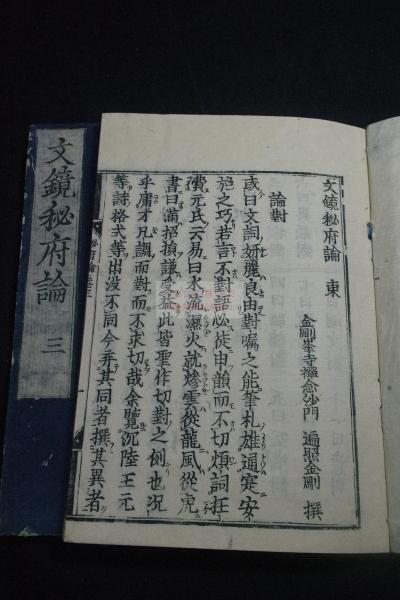 文鏡秘府論 東
金剛峯寺禪念沙門 遍照金剛 撰
論對
或曰文詞妍麗良由對囑之能筆札雄通寔安
施之巧若言不對語必徒申韻而不切煩詞枉
費元氏云易曰水流濕火就燥雲從龍風從虎
書曰滿招損謙受益此皆聖作切對之例也况
乎庸才凡調而對而不求切哉余覽沉陸王元
等詩格式等出没不同今弃其同者撰其異者
文鏡秘府論 三